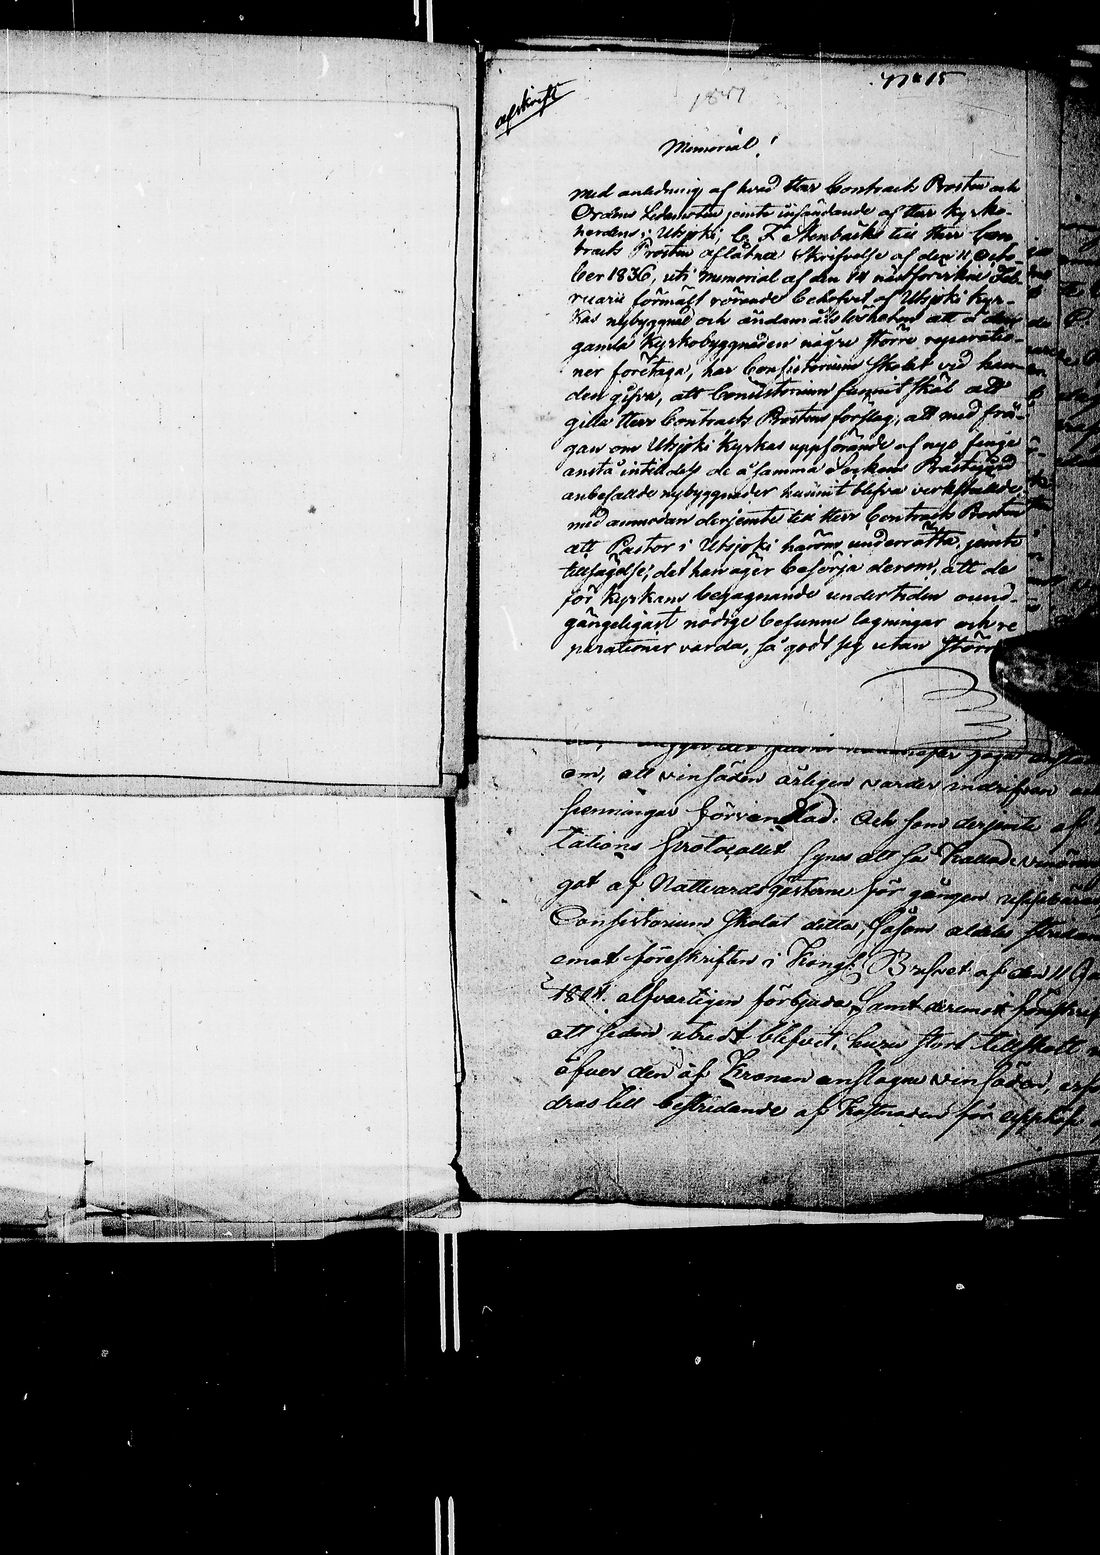 No 15
afskrift
1837
Memorial!
med anledning af hvad Herr Contracts Prosten och
Ordens Ledamoten jemte insändande af Herr Kyrko-
herdens i Utsjoki, C. F. Stenbäcks till Herr Con
tracts Prosten aflåtna Skrifvelse af den 11 Octo-
ber 1836, uti memorial af den 14 nästförvekne Feb-
ruarii förmält rörande behofvet af Utsjoki Kyr-
kas nybyggnad och ändamålslösheten att å den
gamla Kyrkobyggnaden några större reparatio-
ner företaga, har Consistorium skolat vid han-
den gifva, att Consistorium funnit skäl att
gilla Herr Contracts Prostens förslag, att med frå-
gan om Utsjoki Kyrkas uppförande af nyo finge
anstå intilldess de å samma Sockens Prästgård
anbefallde nybyggnader hunnit blifva verkställde,
med anmodan derjemte till Herr Contracts Prosten
att Pastor i Utsjoki härom underrätta, jemte
tillsägelse, det han äger besörja derom, att de
för Kyrkans begagnande under tiden ound-
gängeligast nödige befunne lagningar och re
parationer varda, så godt sig utan större
om, att vinsäden årligen varder indrifven och
penningar förvandlad. Och som derjemte af
tations Protocollet synes att så kallade
got af Nattvardsgästerne för gången uppbäras
Consistorium skolat detta, såsom aldeles stridan
emot föreskriften i Kongl. Brefvet af den 11
alfvarligen förbjuda, samt deremot föreskrif
att sedan utredt blifvit, huru stort tillskott
öfver den af Kronan anslagne vinsäden, erfo
dras till bestridande af kostnaden för uppköp